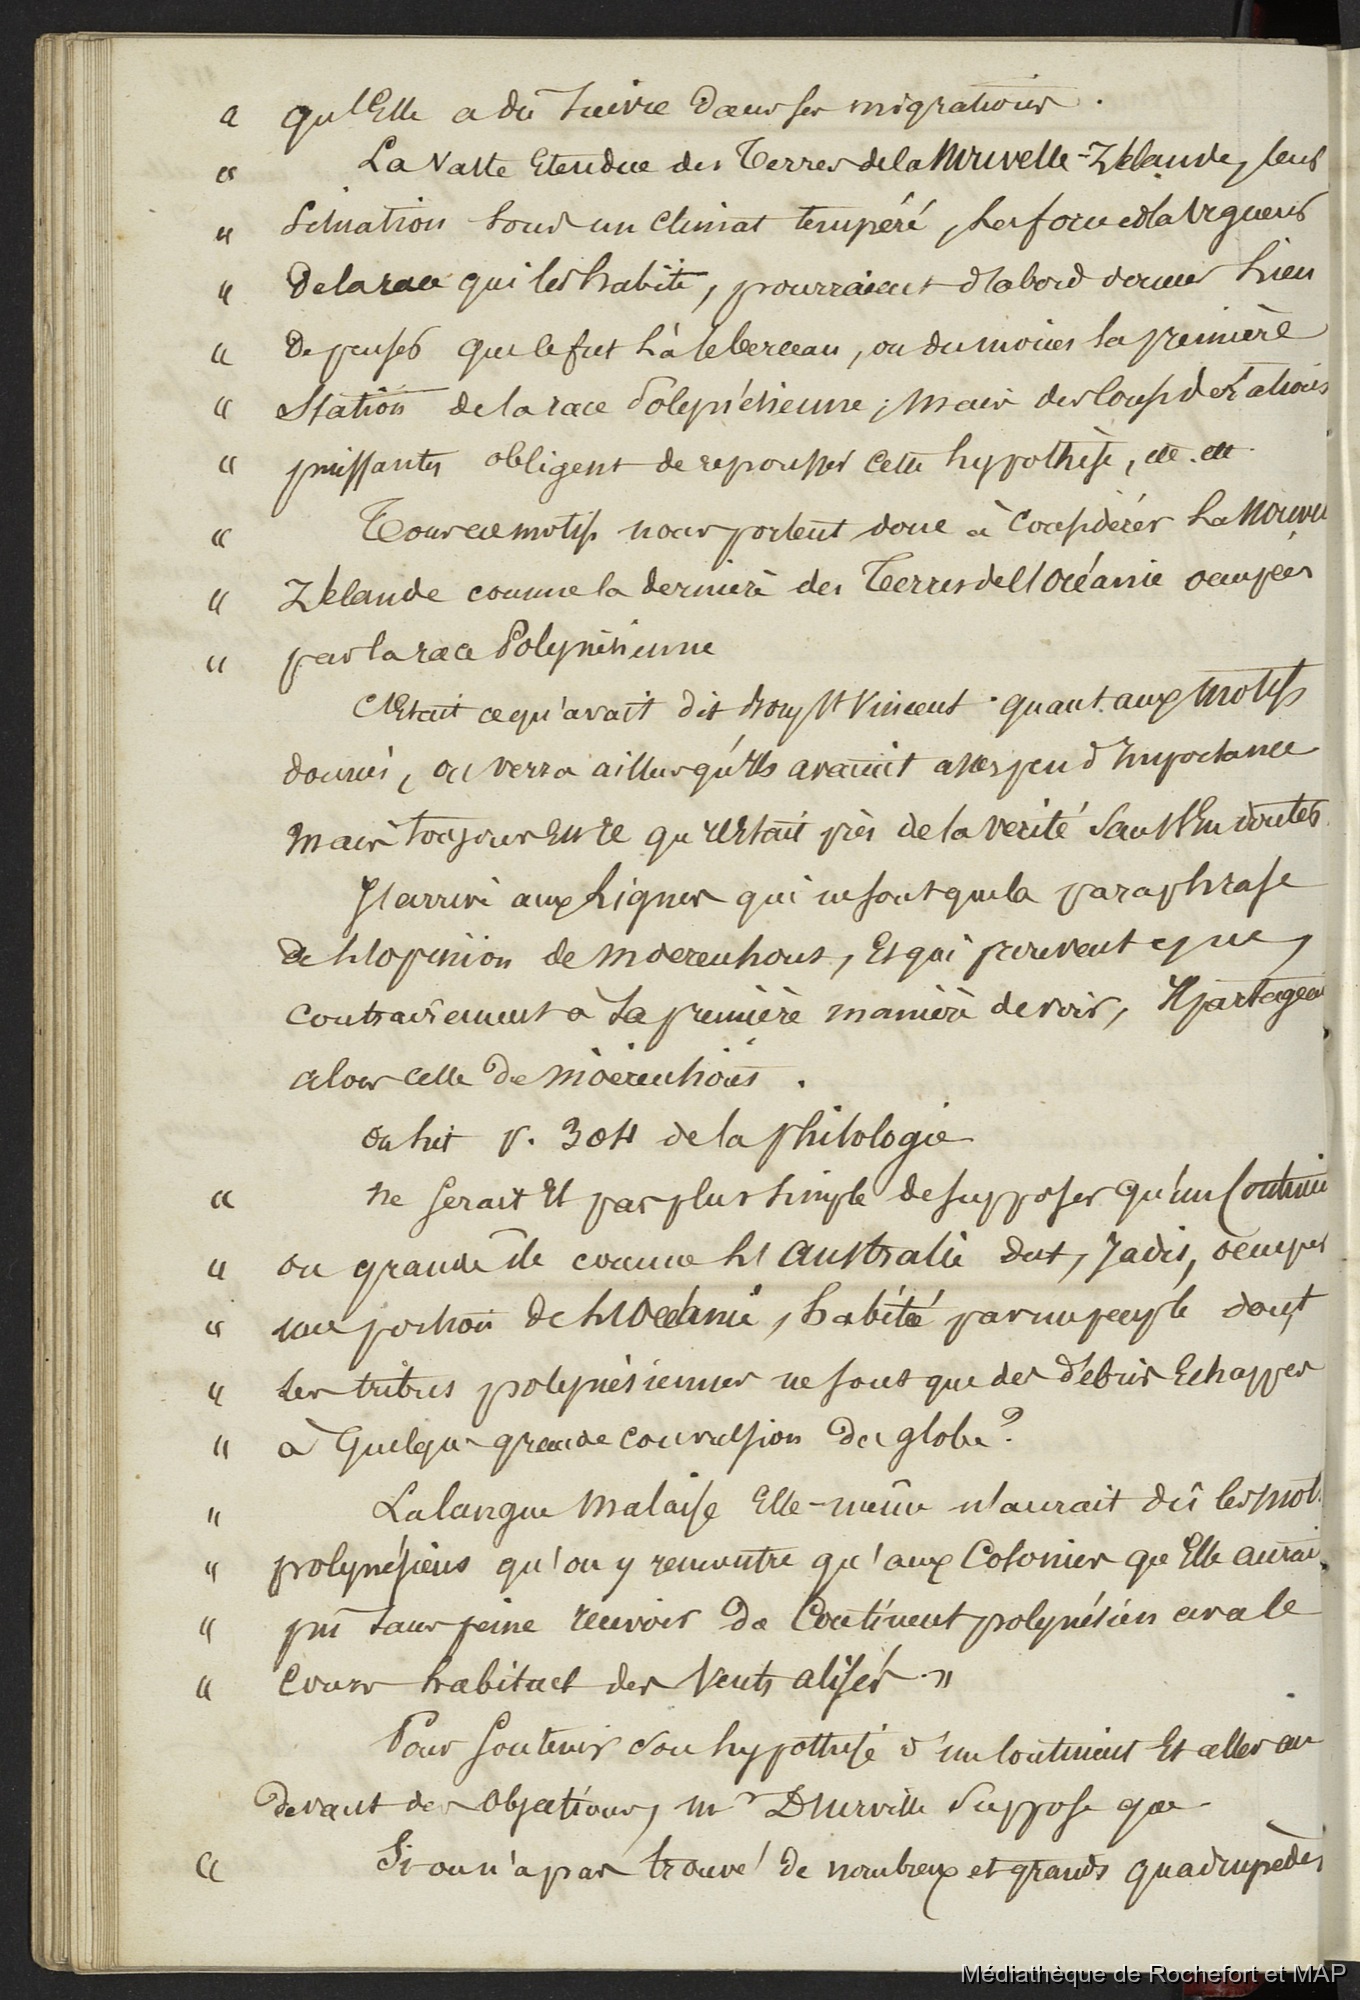 « qu'Elle a dû suivre dans ses migrations.
« La vaste Etendue des Terres de la Nouvelle-Zélande, leur
« Situation sous un climat tempéré, la force et la vigueur
« De la race qui les habite, pourraient d'abord donner lieu
« De penser que ce fut là le berceau, ou du moins la première
« Station de la race Polynésienne; mais des considérations
« puissantes obligent de repousser cette hypothèse, etc. etc
« Tous ces motifs nous portent donc à considérer la Nouve
« Zélande comme la dernière des Terres de l'Océanie occupées
« par la race Polynésienne
C'Etait ce qu'avait dit Bory St Vincent. quant aux motifs
donnés, on verra ailleurs qu'ils avaient assez peu d'Importance
Mais toujours Est-ce qu'il Etait près de la vérité sans s'En douter.
J'arrive aux Lignes qui ne sont que la paraphrase
de l'opinion de Moerenhout, Et qui prouvent que,
contrairement à Sa première manière de voir, Il partageai
alors celle de Moerenhout.
On lit p. 304 de la philologie
« Ne serait Il pas plus Simple de supposer qu'un Contine
« ou grande île comme l'Australie dut, Jadis, occuper
« une portion de l'Océanie, habité par un peuple dont
« les tribus polynésiennes ne sont que des débris Echappés
« à quelque grande convulsion du globe?
« La langue Malaise Elle-même n'aurait dû les mot
« polynésiens qu'on y rencontre qu'aux Colonies que Elle aurai
« pu sans peine recevoir du Continent polynésien avec le
« Cours habituel des Vents alisés.»
Pour soutenir son hypothèse d'un Continent Et aller au
devant des Objections, Mr Durville Suppose que
« Si on n'a pas trouvé de nombreux et grands quadrupèdes
Médiathèque de Rochefort et MAP